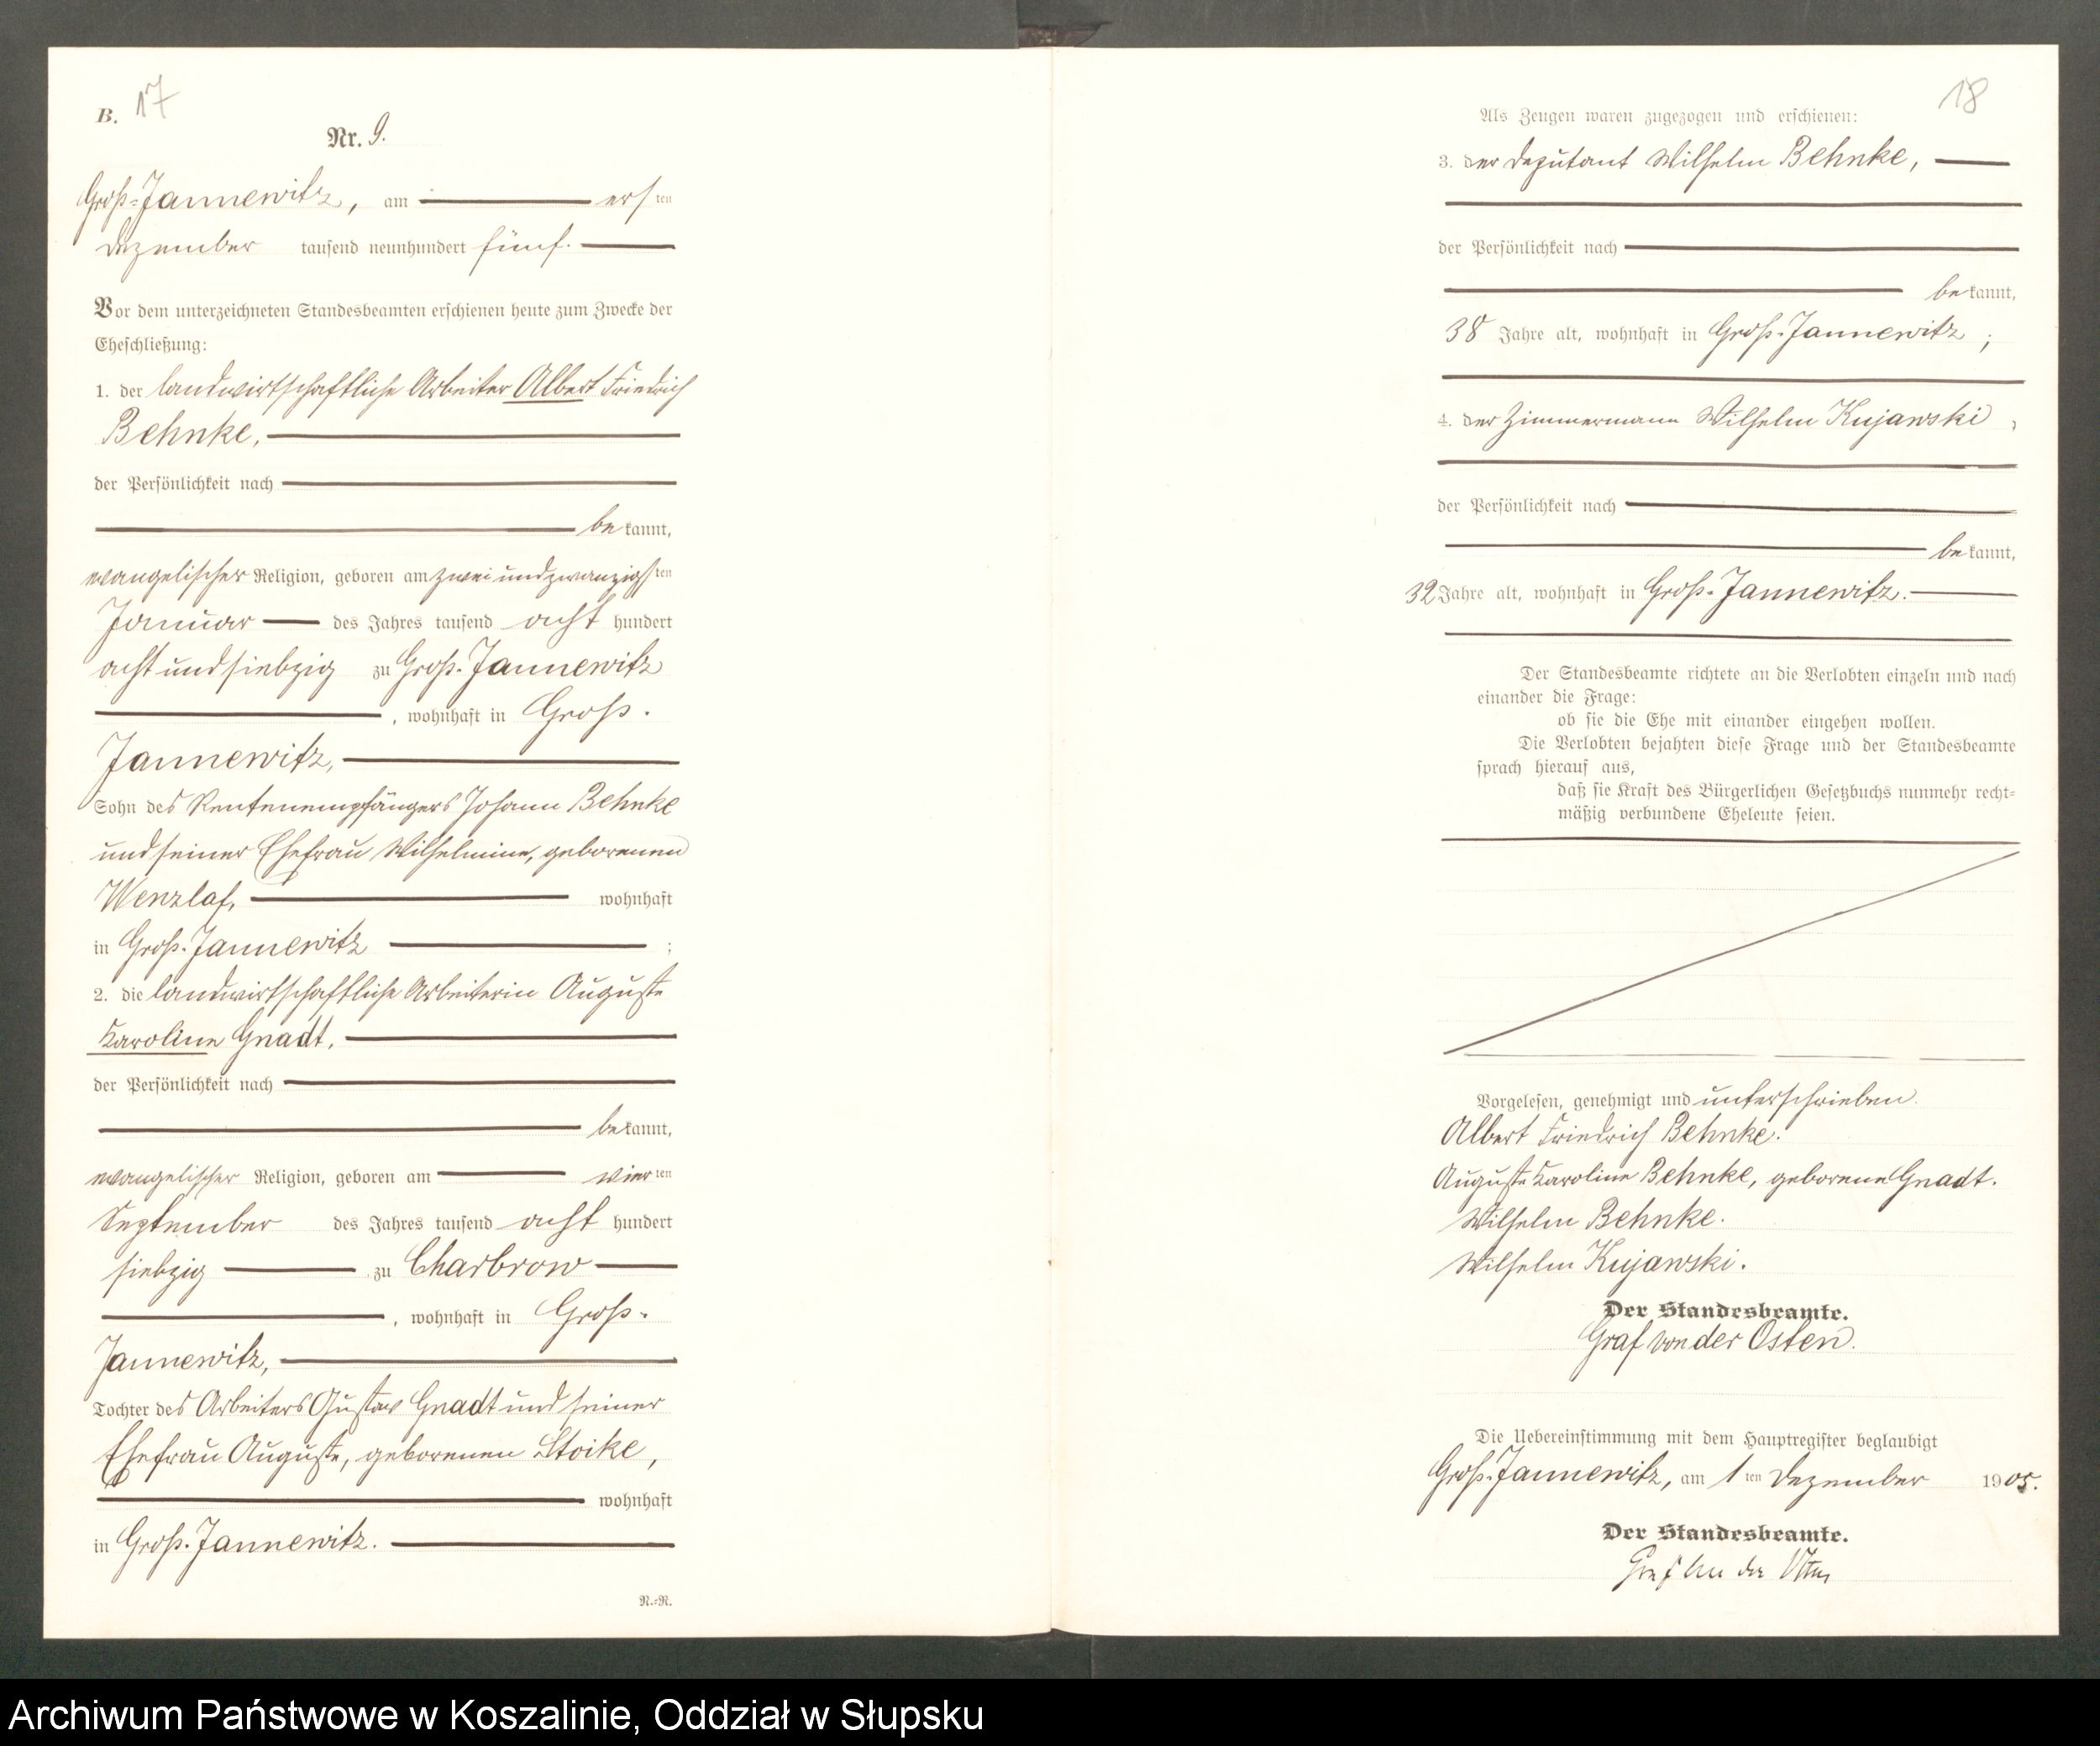 B. 17
Nr. 9.
Groß-Jannewitz, am ersten
Dezember tausend neunhundert fünf.
Vor dem unterzeichneten Standesbeamten erschienen heute zum Zwecke der
Eheschließung:
1. der landwirtschaftliche Arbeiter Albert Friedrich
Behnke,
der Persönlichkeit nach
bekannt,
evangelischer Religion, geboren am zweiundzwanzigsten
Januar des Jahres tausend acht hundert
achtundsiebzig zu Groß-Jannewitz
, wohnhaft in Groß-
Jannewitz,
Sohn des Rentenempfängers Johann Behnke
und seiner Ehefrau Wilhelmine, geborenen
Wenzlaf, wohnhaft
in Groß-Jannewitz ;
2. die landwirtschaftliche Arbeiterin Auguste
Karoline Gnadt,
der Persönlichkeit nach
bekannt,
evangelischer Religion, geboren am vierten
September des Jahres tausend acht hundert
siebzig zu Charbrow
, wohnhaft in Groß-
Jannewitz,
Tochter des Arbeiters Gustav Gnadt und seiner
Ehefrau Auguste, geborenen Stoike,
wohnhaft
in Groß-Jannewitz.
N.=N.
18
Als Zeugen waren zugezogen und erschienen:
3. der Deputant Wilhelm Behnke,
der Persönlichkeit nach
bekannt,
38 Jahre alt, wohnhaft in Groß-Jannewitz ;
4. der Zimmermann Wilhelm Kujawski ,
der Persönlichkeit nach
bekannt,
32 Jahre alt, wohnhaft in Groß-Jannewitz.
Der Standesbeamte richtete an die Verlobten einzeln und nach
einander die Frage:
ob sie die Ehe mit einander eingehen wollen.
Die Verlobten bejahten diese Frage und der Standesbeamte
sprach hierauf aus,
daß sie Kraft des Bürgerlichen Gesetzbuchs nunmehr recht=
mäßig verbundene Eheleute seien.
Vorgelesen, genehmigt und unterschrieben.
Albert Friedrich Behnke.
Auguste Karoline Behnke, geborene Gnadt.
Wilhelm Behnke.
Wilhelm Kujawski.
Der Standesbeamte.
Graf von der Osten.
Die Uebereinstimmung mit dem Hauptregister beglaubigt
Groß-Jannewitz, am 1ten Dezember 1905.
Der Standesbeamte.
Graf von der Osten
Archiwum Państwowe w Koszalinie, Oddział w Słupsku